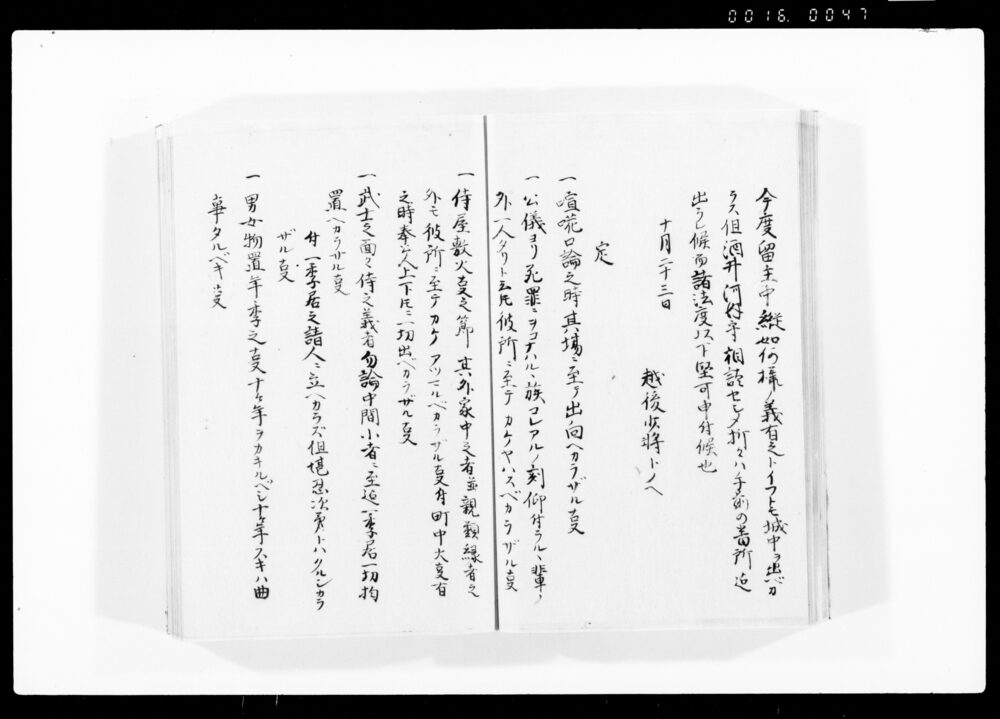 0016.0047
今度留主中縦如何様ノ義有之トイフトモ城中ヲ出ベカ
ラス但酒井河内守相談セシメ折々ハ手前の番所迄
出ラレ候而諸法度以下堅可申付候也
十月二十三日
越後少将トノヘ
定
一 喧嘩口論之時其場ニ至テ出向ヘカラザル叓
一 公儀ヨリ死罪ニヲコナハル丶族コレアルノ刻仰付ラル丶輩ノ
外一人タリト云トモ彼所ニ至テカケヤハスベカラザル叓
一 侍屋敷火叓之節其外家中之者並親類縁者之
外モ彼所ニ至テカケアツマルベカラザル叓付町中火叓有
之時奉公人上下トモニ一切出ベカラザル叓
一 武士之面々侍之義者勿論中間小者ニ至迄一季居一切拘
置ヘカラサル叓
付一季居之請人ニ立ヘカラズ但堪忍次第トハクルシカラ
ザル叓
一 男女物置年季之叓十ヶ年ヲカキルベシ十ヶ年スキハ曲
事タルベキ叓